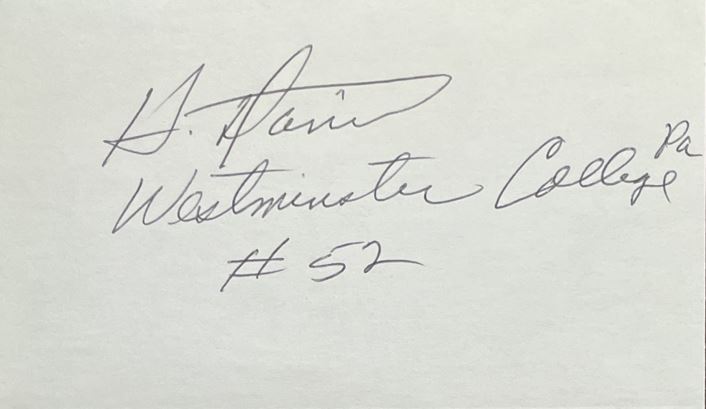 H. Davis
Westminster College Pa
# 52